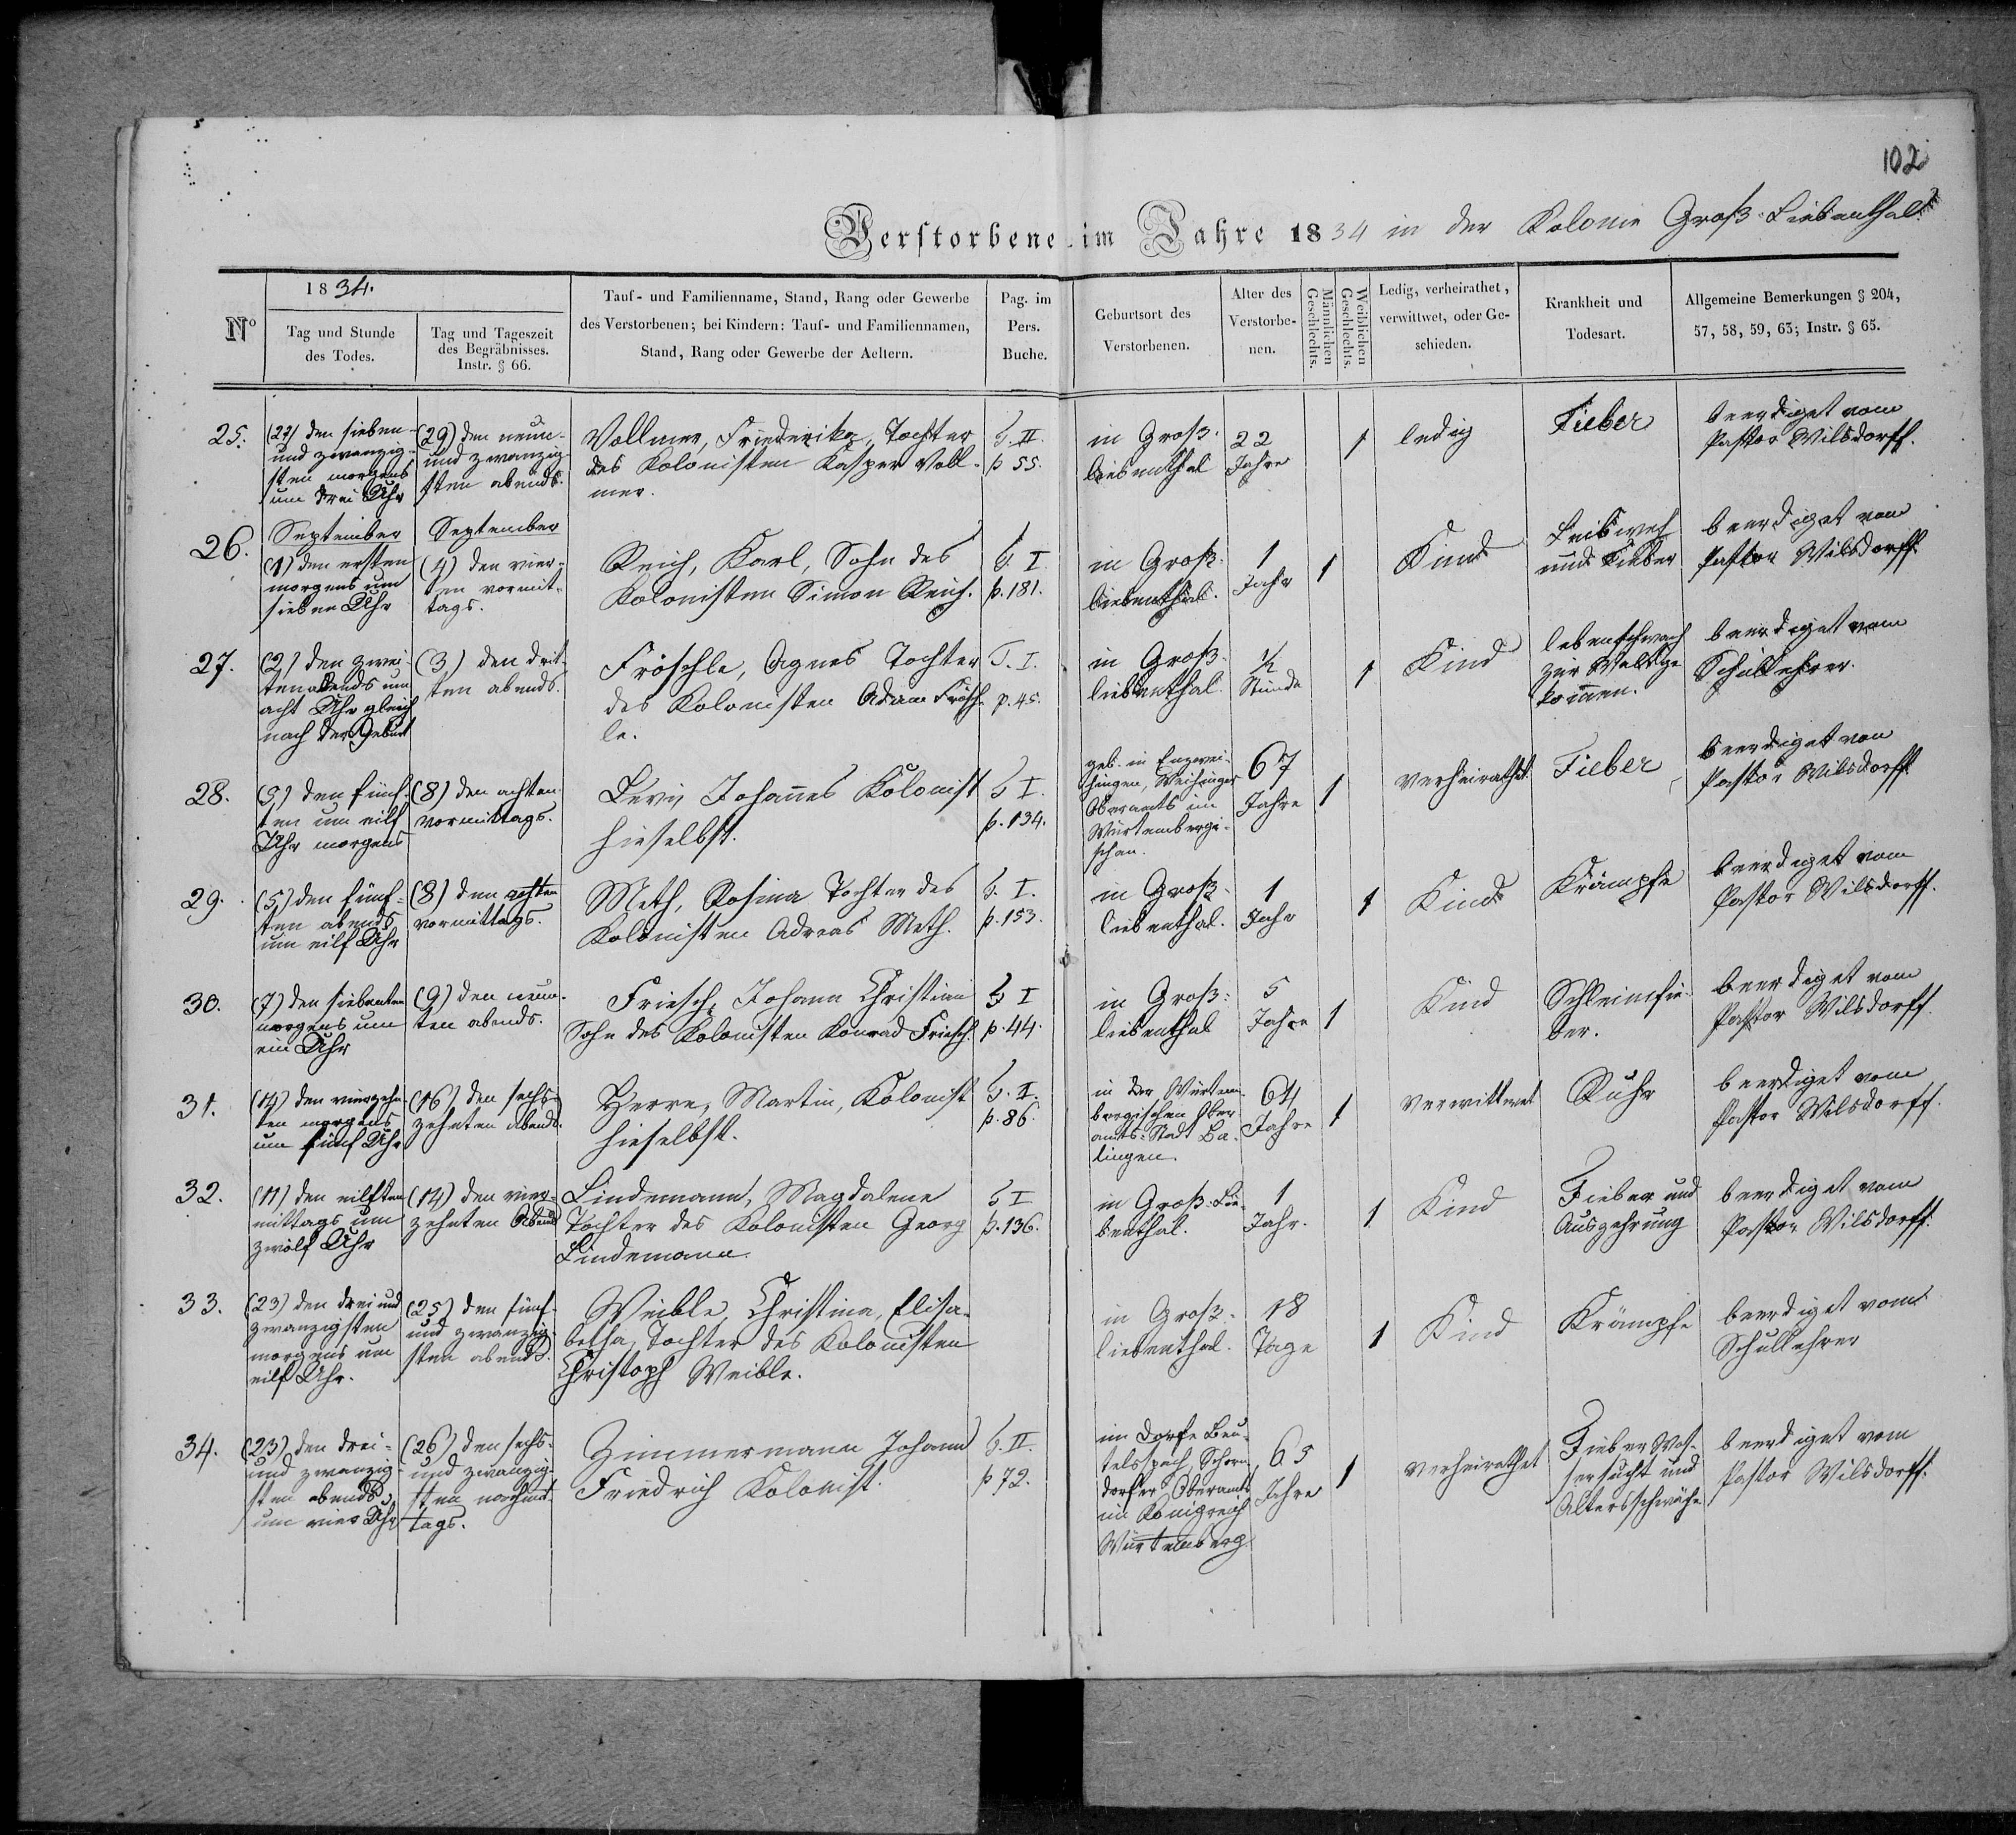 102
Verstorbene im Jahre 1834 in der Kolonie Groß-Liebenthal.
No
1834.
Tag und Stunde
des Todes.
Tag und Tageszeit
des Begräbnisses.
Instr. § 66.
Tauf- und Familienname, Stand, Rang oder Gewerbe
des Verstorbenen; bei Kindern: Tauf- und Familiennamen,
Stand, Rang oder Gewerbe der Aeltern.
Pag. im
Pers.
Buche.
Geburtsort des
Verstorbenen.
Alter des
Verstorbe-
nen.
Männlichen
Geschlechts.
Weiblichen
Geschlechts.
Ledig, verheirathet,
verwittwet, oder Ge-
schieden.
Krankheit und
Todesart.
Allgemeine Bemerkungen § 204,
57, 58, 59, 63; Instr. § 65.
25.
(27) den sieben-
und zwanzig-
sten morgens
um drei Uhr
(29) den neun-
und zwanzig-
sten abends.
Vollmer, Friederika, Tochter
des Kolonisten Kasper Voll-
mer.
II.
p 55.
in Groß-
liebenthal
22
Jahre
1
ledig
Fieber
beerdiget vom
Pastor Wilsdorff.
26.
September
(1) den ersten
morgens um
sieben Uhr
September
(4) den vier-
ten vormit-
tags.
Reich, Karl, Sohn des
Kolonisten Simon Reich.
I.
p. 181.
in Groß-
liebenthal.
1
Jahr
1
Kind
Leibweh
und Fieber
beerdiget vom
Pastor Wilsdorff.
27.
(2) den zwei-
ten abends um
acht Uhr gleich
nach der Geburt
(3) den drit-
ten abends.
Fröschle, Agnes Tochter
des Kolonisten Adam Frösch-
le.
T. I.
p. 45.
in Groß-
liebenthal.
1/2
Stunde
1
Kind
lebenschwach
zur Welt ge-
kommen.
beerdiget vom
Schullehrer.
28.
(5) den fünf-
ten um eilf
Uhr morgens
(8) den achten
vormittags.
Levi, Johannes Kolonist
hieselbst.
I.
p. 134.
geb. in Enzwei-
hingen, Weihinger
Oberamts im
Würtembergi-
schen.
67
Jahre
1
verheirathet
Fieber
beerdiget von
Pastor Wilsdorff
29.
(5) den fünf-
ten abends
um eilf Uhr
(8) den achten
vormittags.
Meth, Rosina Tochter des
Kolonisten Adreas Meth.
I.
p. 153.
in Groß-
liebenthal.
1
Jahr
1
Kind
Krämpfe
beerdiget vom
Pastor Wilsdorff.
30.
(7) den siebenten
morgens um
ein Uhr
(9) den neun-
ten abends.
Friesch, Johann Christian
Sohn des Kolonisten Konrad Friesch.
I
p. 44.
in Groß-
liebenthal
5
Jahre
1
Kind
Schleimfie-
ber.
beerdiget vom
Pastor Wilsdorff.
31.
(14) den vierzehn-
ten morgens
um fünf Uhr
(16) den sechs-
zehnten abends.
Herre, Martin, Kolonist
hieselbst.
I.
p. 86.
in der Würtem-
bergischen Ober-
amts-Stadt Ba-
lingen.
64
Jahre
1
verwittwet
Ruhr
beerdiget vom
Pastor Wilsdorff.
32.
(11) den eilften
mittags um
zwölf Uhr
(14) den vier-
zehnten Abends
Lindemann, Magdalena
Tochter des Kolonisten Georg
Lindemann
I
p. 136.
in Groß-Lie-
benthal.
1
Jahr.
1
Kind
Fieber und
Auszehrung
beerdiget vom
Pastor Wilsdorff.
33.
(23) den drei und
zwanzigsten
morgens um
eilf Uhr.
(25) den fünf-
und zwanzig-
sten abends.
Weible, Christina, Elisa-
betha, Tochter des Kolonisten
Christoph Weible.
in Groß-
liebenthal.
18
Tage
1
Kind
Krämpfe
beerdiget vom
Schullehrer
34.
(23) den drei-
und zwanzig-
sten abends
um vier Uhr
(26) den sechs-
und zwanzig-
sten nachmit-
tags.
Zimmermann Johann
Friedrich Kolonist.
II.
p 72.
im Dorfe Beu-
telspach, Schorn-
dorfer Oberamts
im Königreich
Würtemberg
65
Jahre
1
verheirathet
Fieber Was-
sersucht und
Altersschwäche
beerdiget vom
Pastor Wilsdorff.